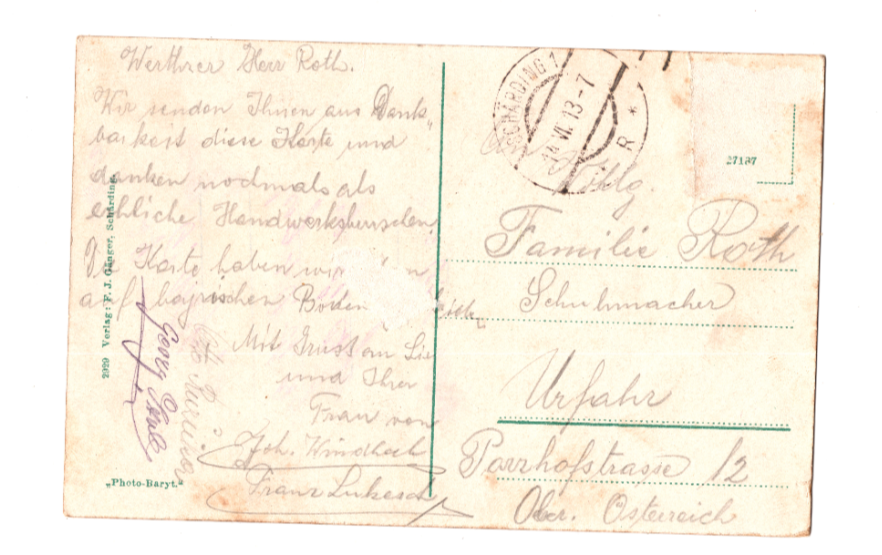 Werthrer Herr Roth.
Wir senden Ihnen aus Dank-
barkeit diese Karte und
danken nochmals als
ehhliche Handwerksburschen.
Die Karte haben wir
auf bayrischen Boden
Mit Gruss an Sie
und Ihrer
Frau von
Joh. Windbach
Franz Lukesch
Georg
Otto
2929 Verlag: F. J. Gänger, Schärding.
„Photo-Baryt.“
SCHÄRDING 1
14 VI. 13-7
* R *
27197
An
Familie Roth
Schuhmacher
Urfahr
Parrhofstrasse 12
Ober. Östereich